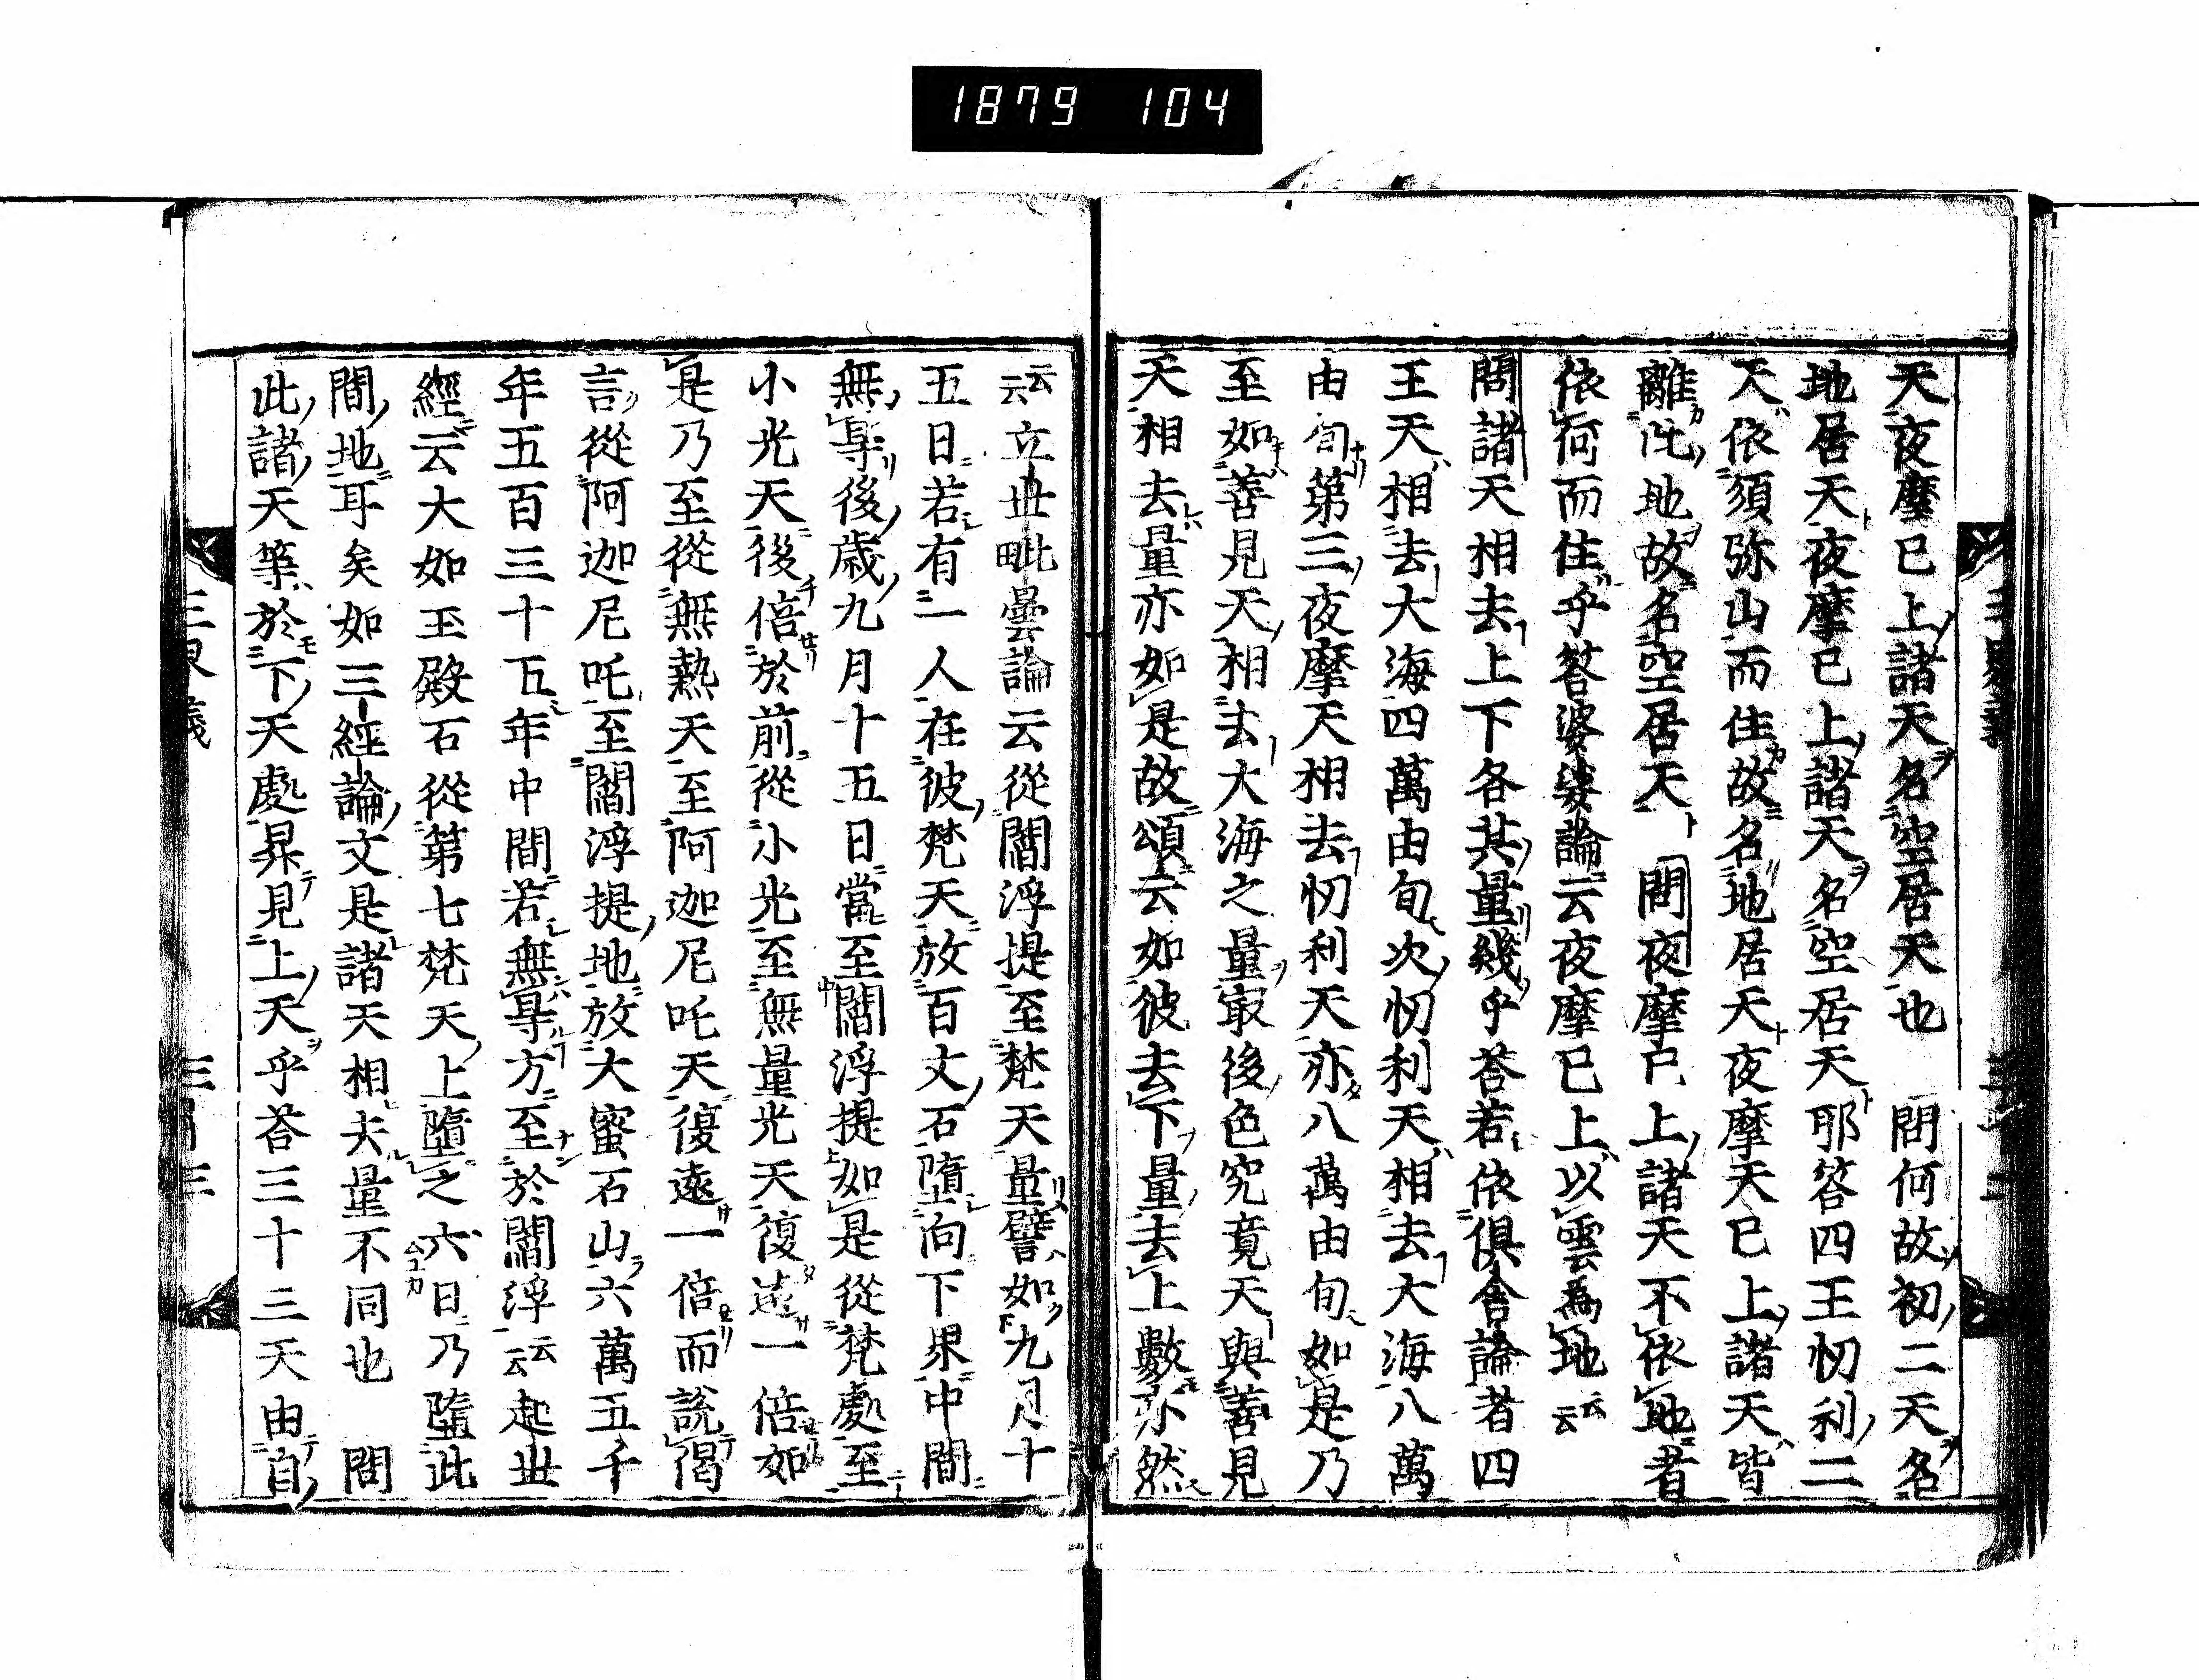 1879 104
天夜摩已上諸天名空居天也 問何故初二天名
地居天夜摩已上諸天名空居天耶答四王忉利二
天依須弥山而住故名地居天夜摩天已上諸天皆
離此地故名空居天 問夜摩已上諸天不依地者
依何而住乎答婆娑論云夜摩已上以雲為地云云
問諸天相去上下各其量幾乎荅若依俱舎論者四
王天相去大海四萬由旬次忉利天相去大海八萬
由旬第三夜摩天相去忉利天亦八萬由旬如是乃
至如善見天相去大海之量㝡後色究竟天與善見
天相去量亦如是故頌云如彼去下量去上數亦然
云云立丗毗曇論云從閻浮提至梵天量譬如九月十
五日若有一人在彼梵天放百丈石墮向下界中間
無㝵後歳九月十五日當至閻浮提如是從梵處至
小光天後倍於前從小光至無量光天復遠一倍如
是乃至從無熱天至阿迦尼吒天復遠一倍而說偈
言從阿迦尼吒至閻浮提地放大蜜石山六萬五千
年五百三十五年中間若無㝵方至於閻浮云云起丗
經云大如王殿石從第七梵天上墮之六日乃墮此
間地耳矣如三經論文是諸天相去量不同也 問
此諸天等於下天處昇見上天乎荅三十三天由自